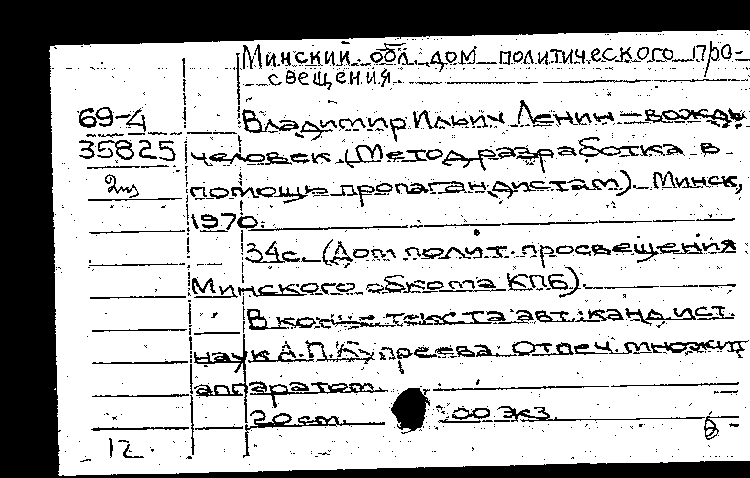 Минский обл. дом политического про-
свещения.
69-4
35825
Владимир Ильич Ленин — вождь
человек. (Метод. разработка в
помощь пропагандистам). Минск,
1970.
34с. (Дом полит. просвещения
Минского обкома КПБ).
В конце текста авт.: канд. ист.
наук А.П. Купреева. Отпеч. множит
аппаратом.
20 см. 00 экз.
12.